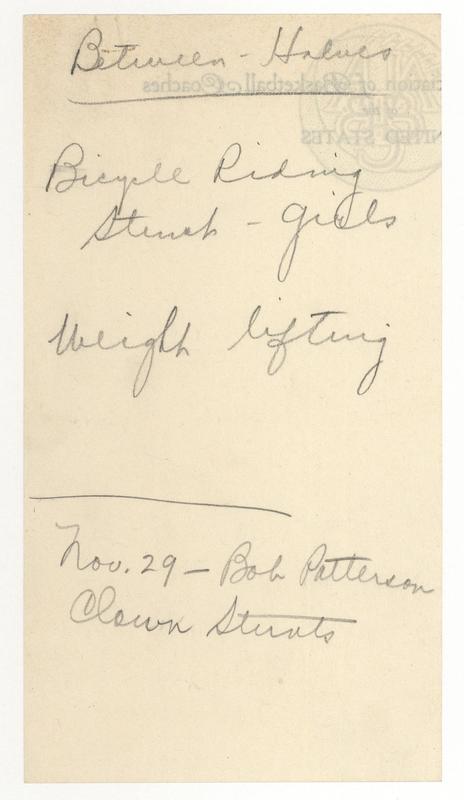 Between - Halves
ciation of Basketball Coaches
of the
UNITED STATES
Bicycle Riding
Stunts - Girls
Weight lifting
Nov. 29 - Bob Patterson
Clown Stunts